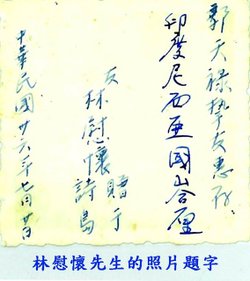 郭天祿挚友惠存
印度尼西亞國山厘
友
林慰懷 贈于
詩島
中華民國廿六年七月廿日
林慰懷先生的照片題字